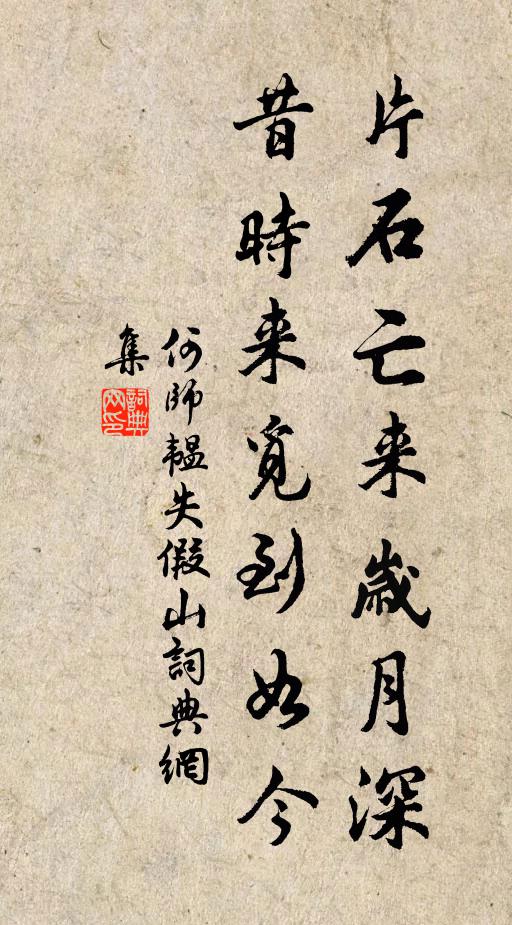 片石亡来歲月深
昔時来覓到如今
何師韞失假山詞典網
集
詞典
网印